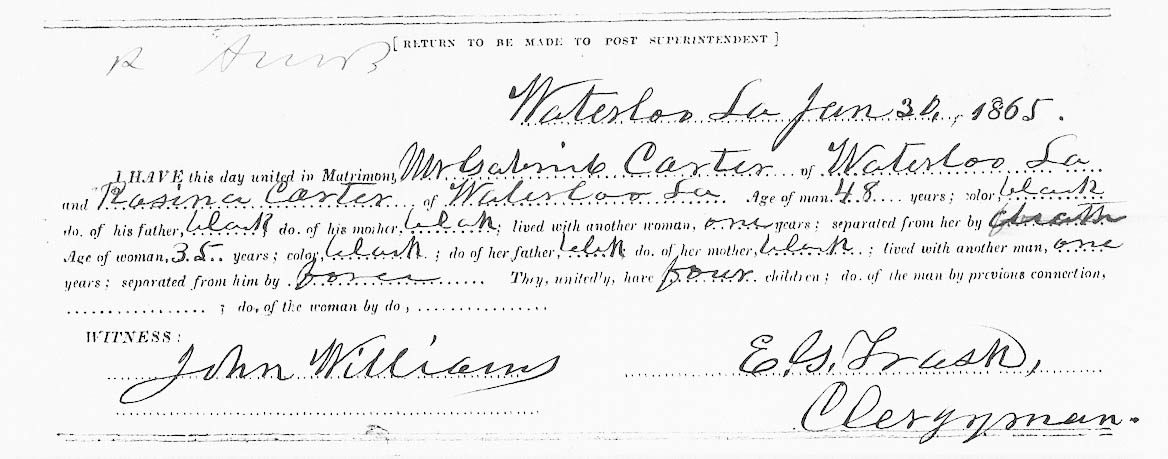 [RETURN TO BE MADE TO POST SUPERINTENDENT]
Waterloo La Jan 30, 1865.
I HAVE this day united in Matrimony Mr Carter of Waterloo La
and Rosina Carter of Waterloo La Age of man 48 years; color, black
do. of his father, black do. of his mother, black; lived with another woman, one years; separated from her by death
Age of woman, 35 years; color, black; do of her father, black do. of her mother, black; lived with another man, one
years; separated from him by force They, unitedly, have four children; do. of the man by previous connection,
; do, of the woman by do,
WITNESS:
John Williams E. G. Trask,
Clergyman.